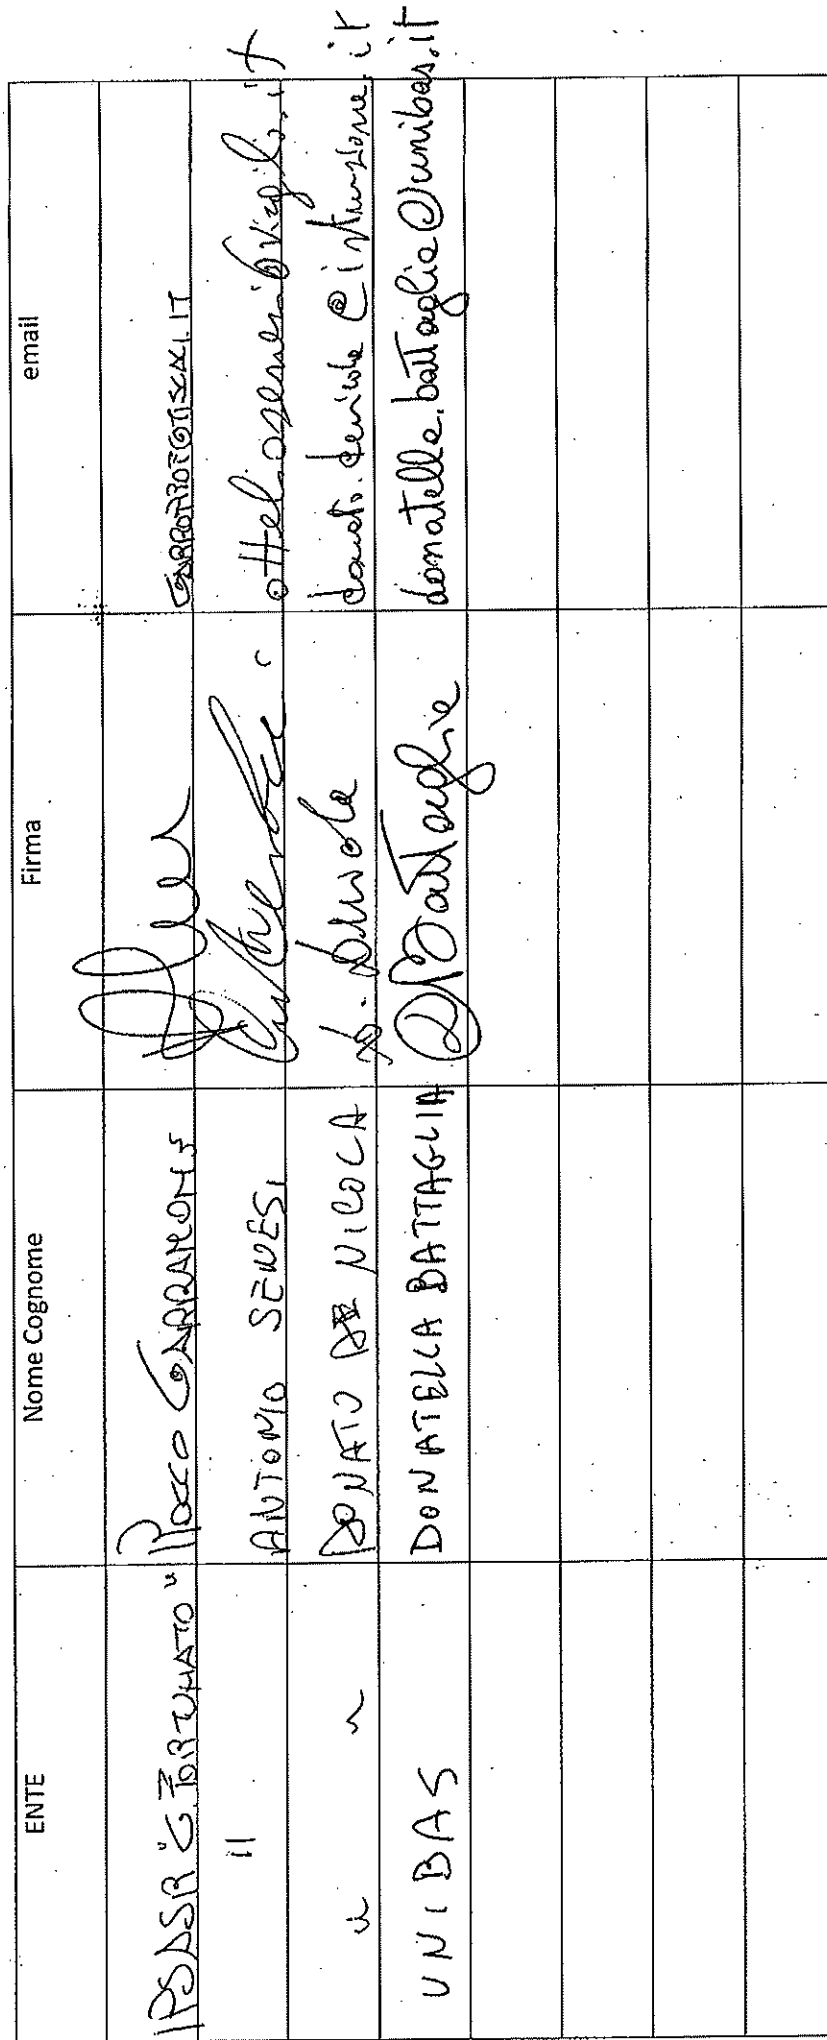 ENTE Nome Cognome Firma email
IPSASR "G. FORTUNATO" ROCCO GARRAMONE
" ANTONIO SENESI
" " DONATO DE NICOLA D. De Nicola donato.denicola@istruzione.it
UNIBAS DONATELLA BATTAGLIA DBattaglia donatella.battaglia@unibas.it